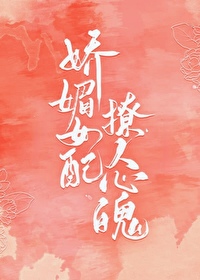 娇媚女配
撩人心魄